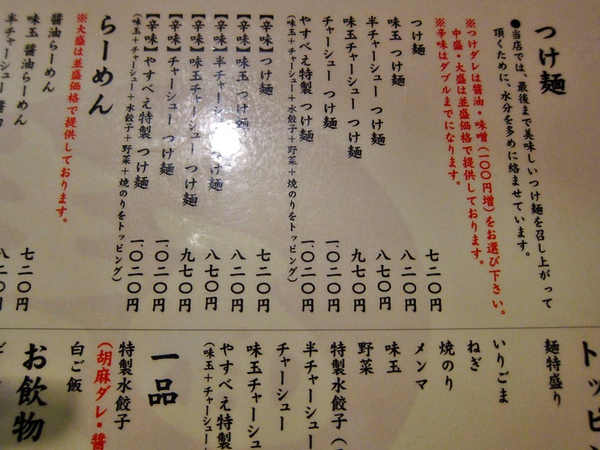 つけ麺
●当店では、最後まで美味しいつけ麺を召し上がって
頂くために、水分を多めに絡ませています。
※つけダレは醤油・味噌(一〇〇円増)をお選び下さい。
中盛・大盛は並盛価格で提供しております。
※辛味はダブルまでになります。
つけ麺 七二〇円
味玉 つけ麺 八二〇円
半チャーシュー つけ麺 八七〇円
味玉チャーシュー つけ麺 九七〇円
チャーシュー つけ麺 一、〇二〇円
やすべえ特製 つけ麺 一、〇二〇円
(味玉+チャーシュー+水餃子+野菜+焼のりをトッピング)
【辛味】つけ麺 七二〇円
【辛味】味玉 つけ麺 八二〇円
【辛味】半チャーシュー つけ麺 八七〇円
【辛味】味玉チャーシュー つけ麺 九七〇円
【辛味】チャーシュー つけ麺 一、〇二〇円
【辛味】やすべえ特製 つけ麺 一、〇二〇円
(味玉+チャーシュー+水餃子+野菜+焼のりをトッピング)
らーめん
※大盛は並盛価格で提供しております。
醤油らーめん 七二〇円
味玉 醤油らーめん 八二〇円
半チャーシュー 醤油
トッピン
麺特盛り
いりごま
ねぎ
焼のり
メンマ
味玉
野菜
特製水餃子(
半チャーシュー
チャーシュー
味玉チャーシュ
やすべえ特製
(味玉+チャーシュー+水
一品
特製水餃子
(胡麻ダレ・醤
白ご飯
お飲物